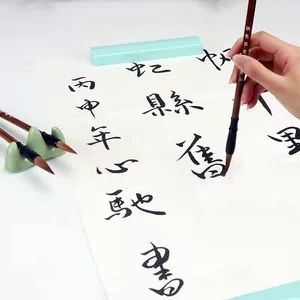 帆里
虹縣舊
丙申年心馳書